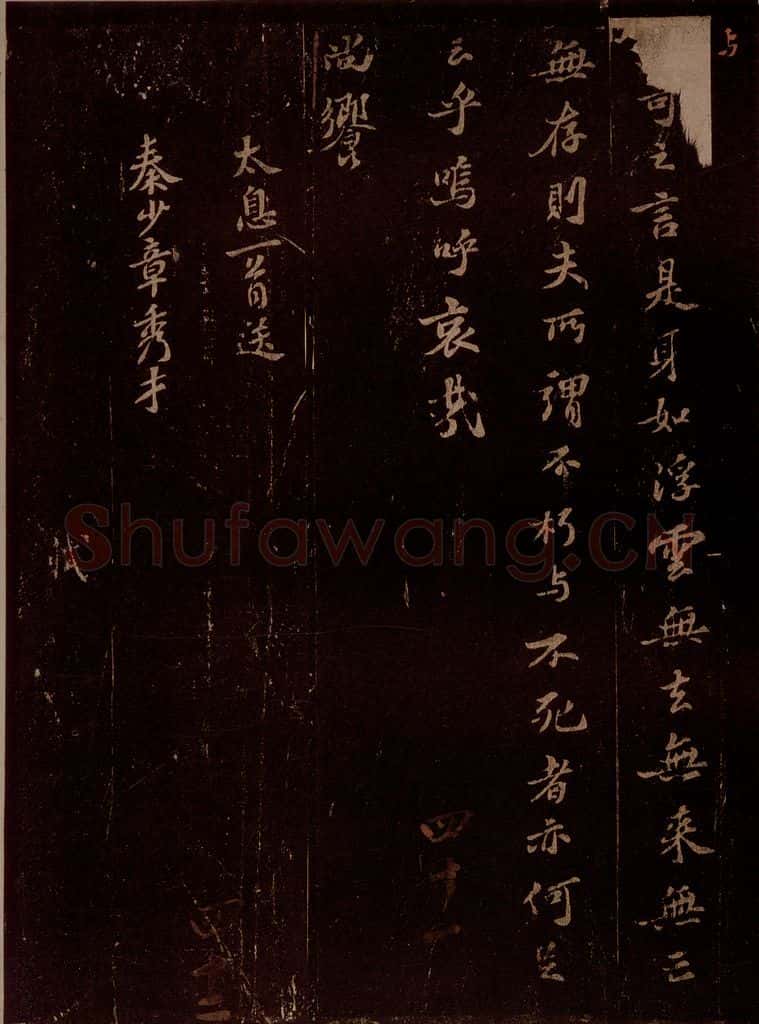 与
可之言是身如浮雲無去無來無亡
無存則夫所謂不朽与不死者亦何足
云乎嗚呼哀哉
尚饗
太息一首送
秦少章秀才
四十一
四十二
Shufawang.CN